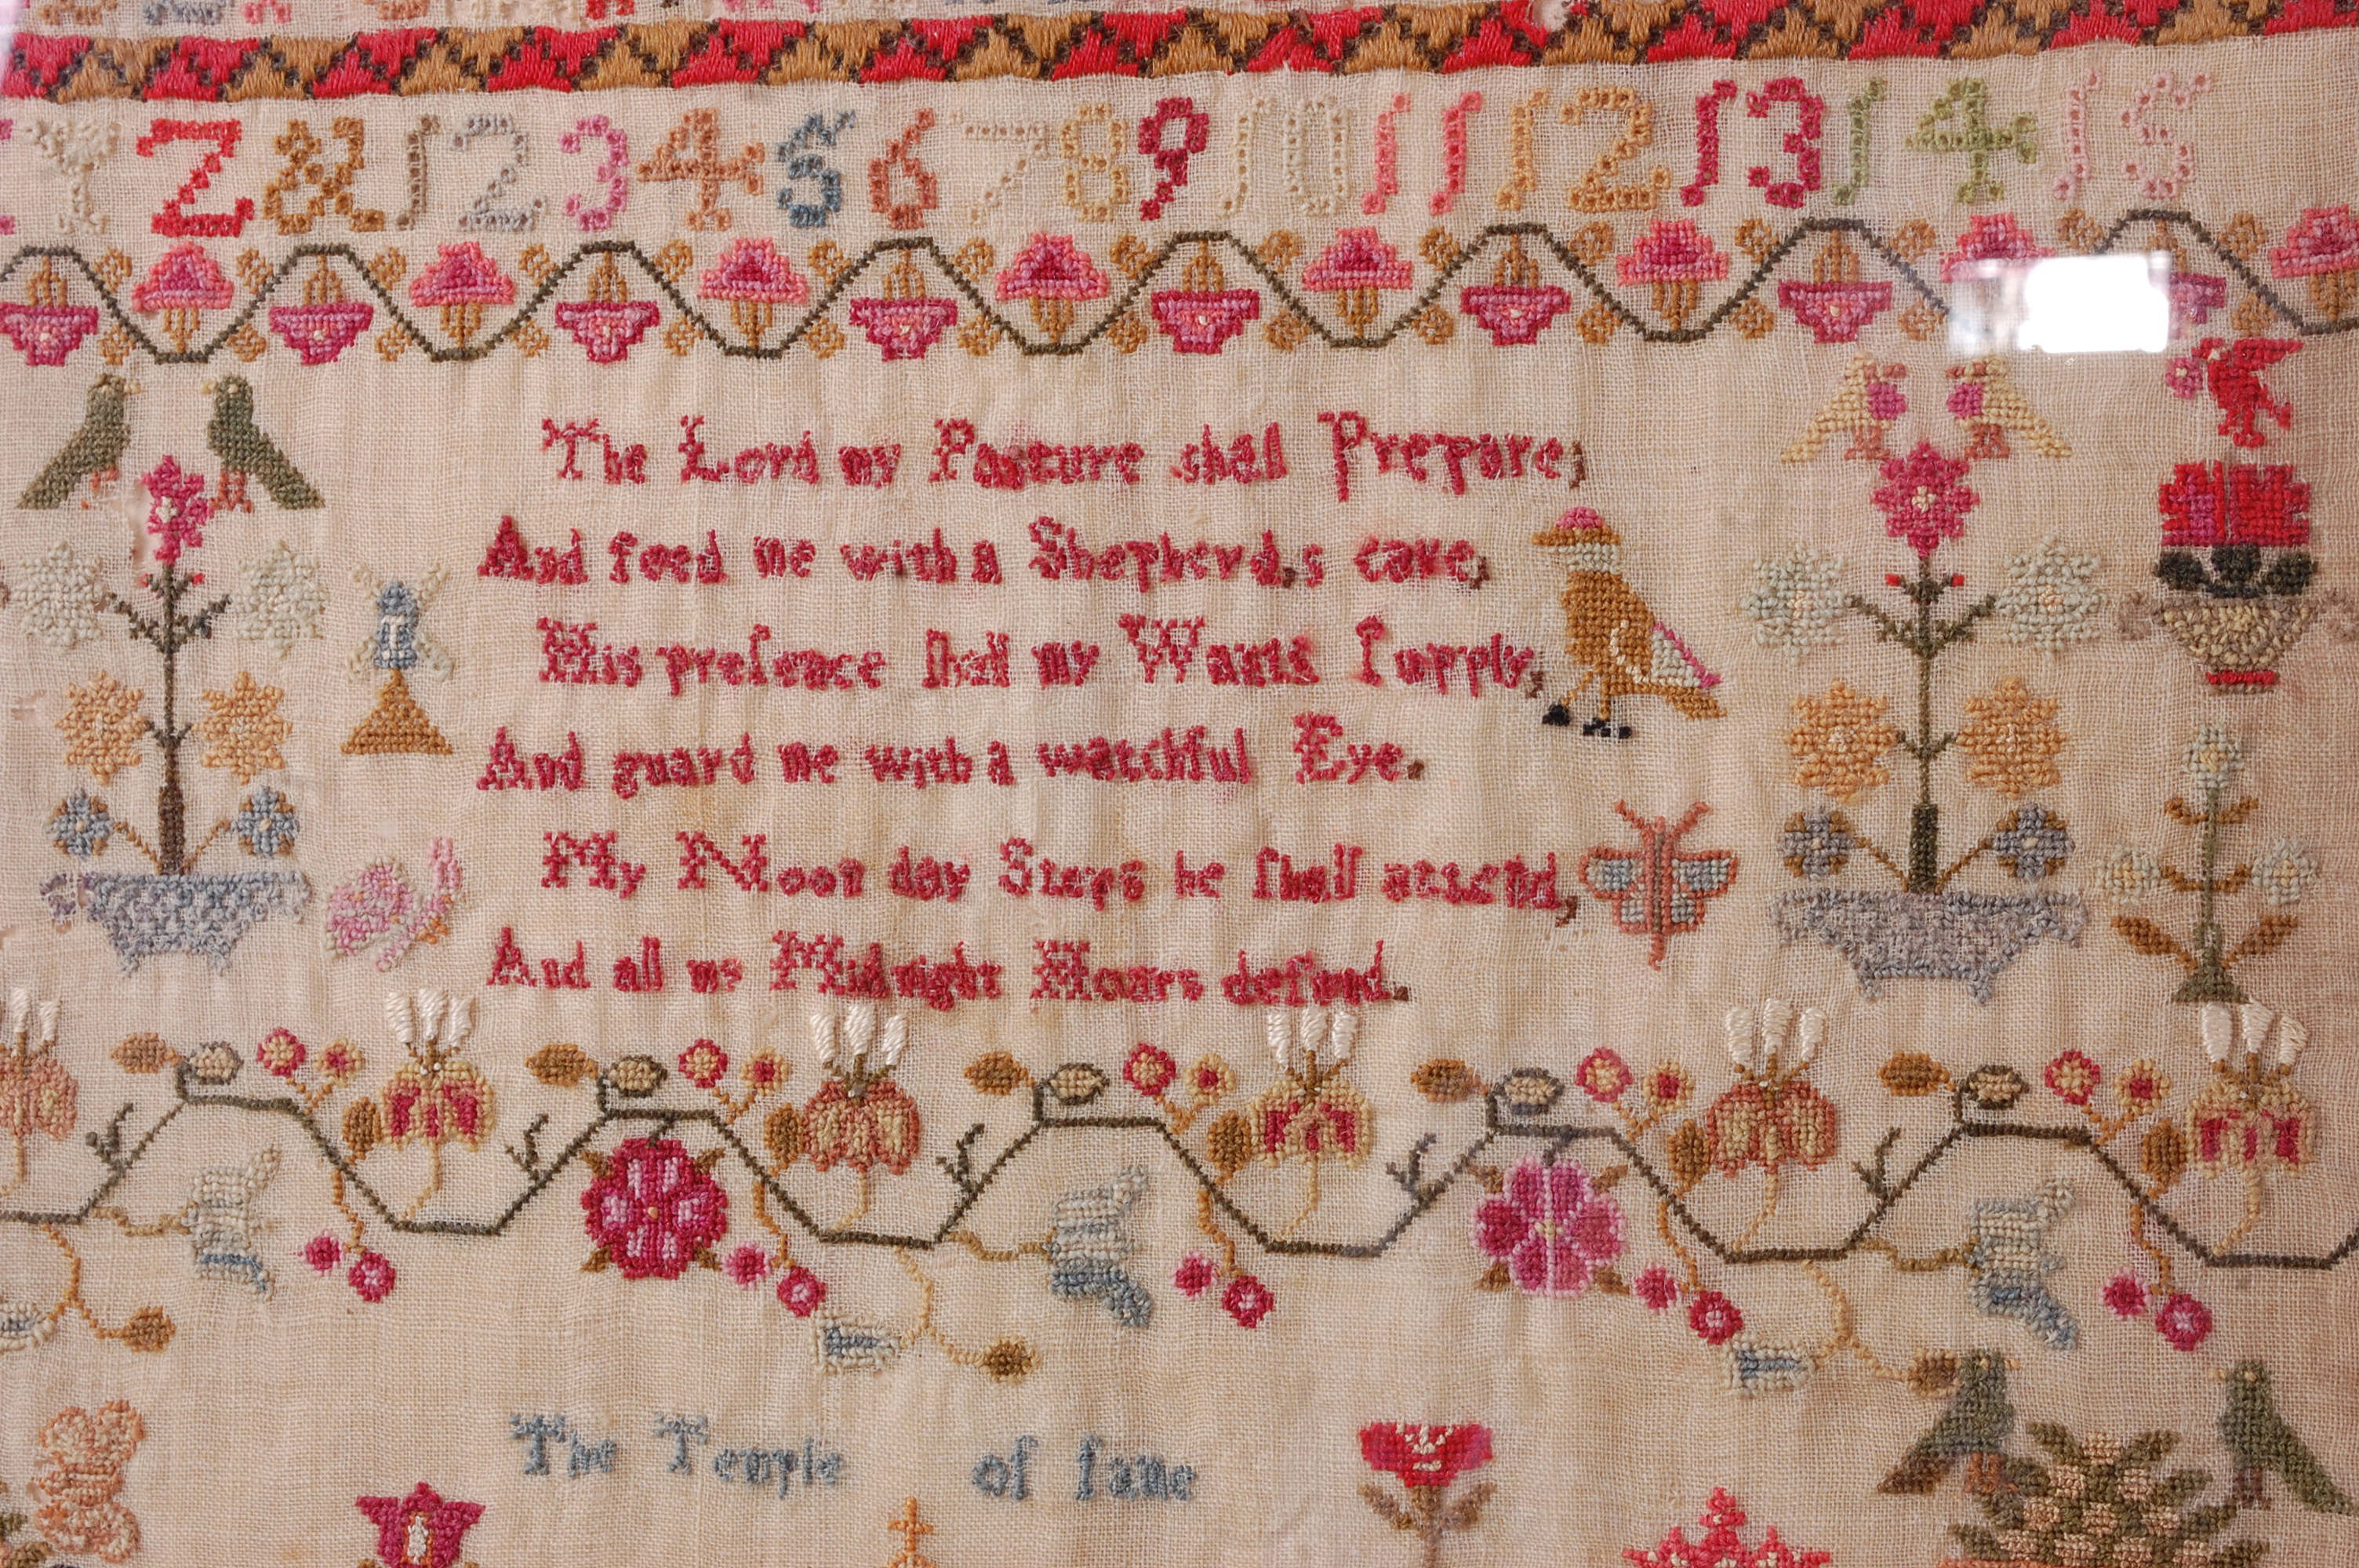 Y Z & 1 2 3 4 5 6 7 8 9 10 11 12 13 14 15
The Lord my Pasture shall Prepare,
And feed me with a Shepherd,s care,
His preſence ſhall my Wants ſupply,
And guard me with a watchful Eye.
My Noon day Steps he ſhall attend,
And all my Midnight Hours defend.
The Temple of fame